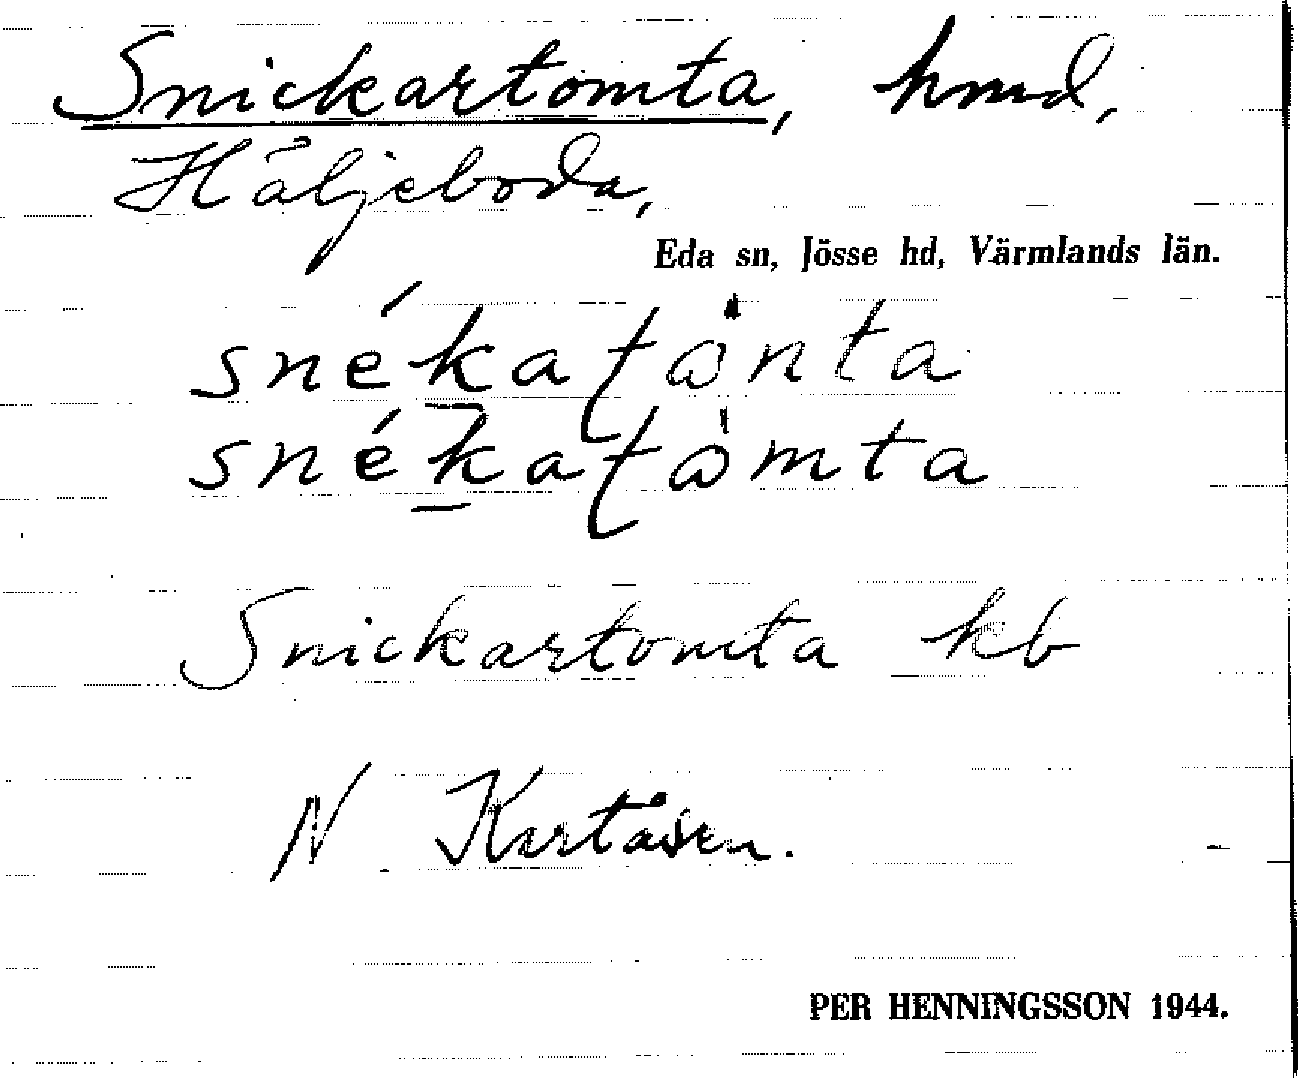 Snickartomta, hmd,
Häljeboda,
Eda sn, Jösse hd, Värmlands län.
snékatånta
snékatåmta
Snickartomta kb
N Kartåsen.
PER HENNINGSSON 1944.